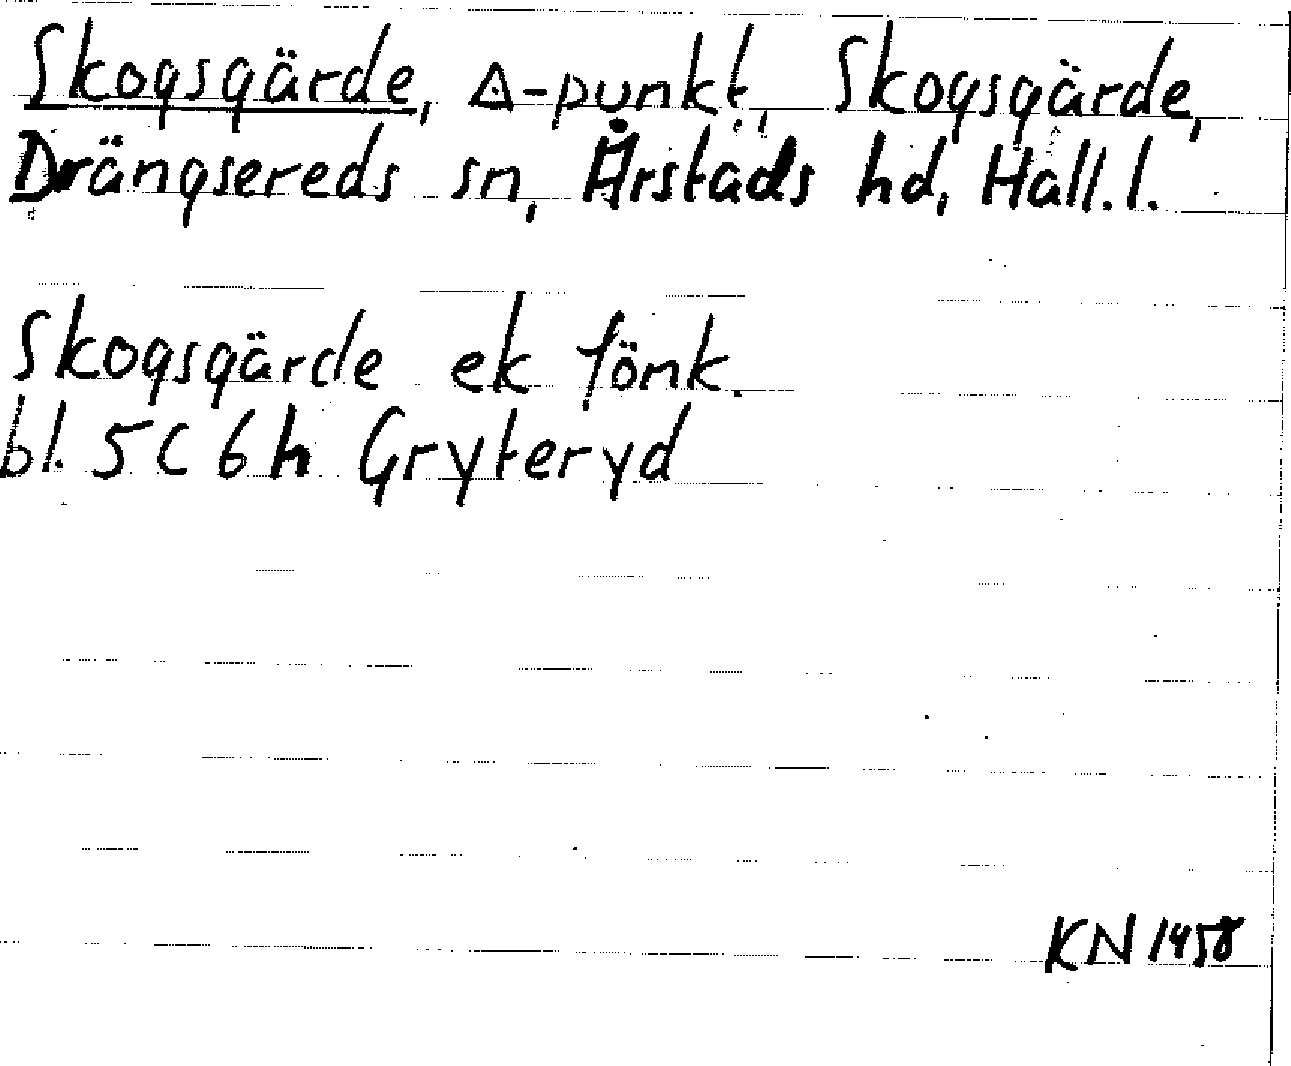 Skogsgärde, △-punkt, Skogsgärde,
Drängsereds sn, Årstads hd, Hall. l.
Skogsgärde ek fönk.
bl. 5C 6h Gryteryd
KN 1958